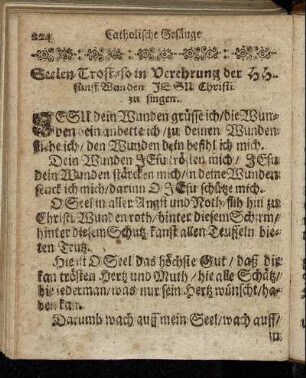 224 Catholische Gesänge
Seelen Trost/so in Verehrung der HH.
fünff Wunden JESU Christi
zu singen.
JESU dein Wunden grüsse ich/die Wun-
den dein anbette ich/zu deinen Wunden
fliehe ich/ den Wunden dein befihl ich mich.
Dein Wunden JEsu trösten mich / JEsu
dein Wunden stärcken mich/in deine Wunden
senck ich mich/darum O JEsu schütze mich.
O Seel in aller Angst und Noth/flih hin zu
Christi Wunden roth/hinter diesem Schirm/
hinter diesem Schutz kanst allen Teuffeln bie-
ten Trutz.
Hie ist O Seel das höchste Gut / daß dir
kan trösten Hertz und Muth / hie alle Schätz/
hie jederman/was nur sein Hertz wünscht/ha-
ben kan.
Darumb wach auff mein Seel/wach auff/
in